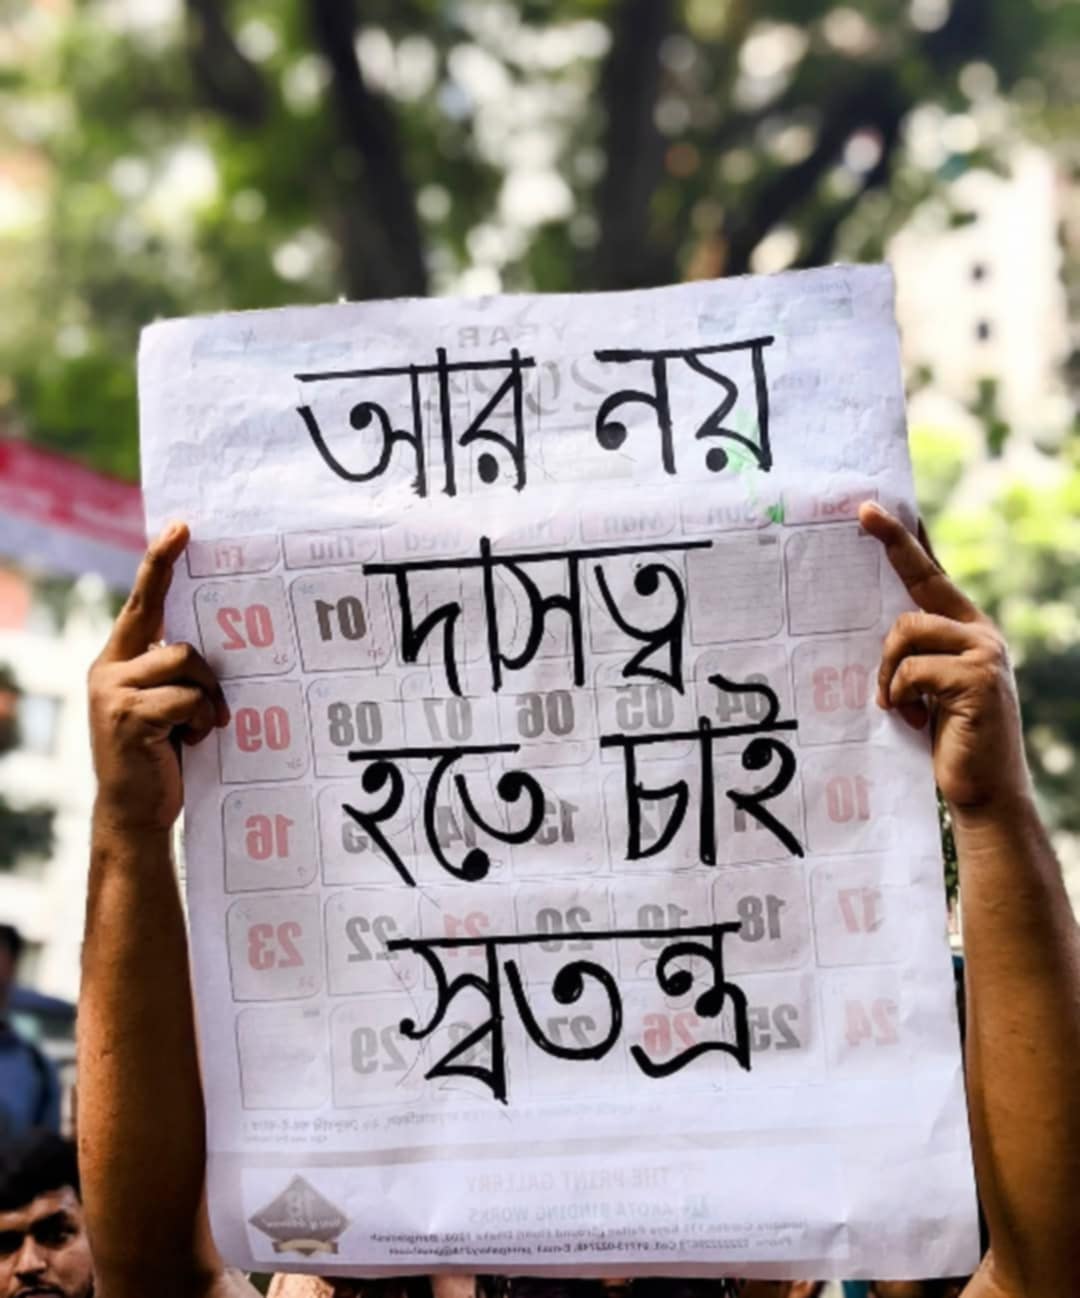 আর নয়
দাসত্ব
হতে চাই
স্বতন্ত্র
YEAR
Sat Sun Mon Wed Thu Fri
01 02
03 04 05 06 07 08 09
10 11 13 14 16
17 18 19 20 21 22 23
24 25 26 27 29
THE PRINT GALLERY
BINDING WORKS